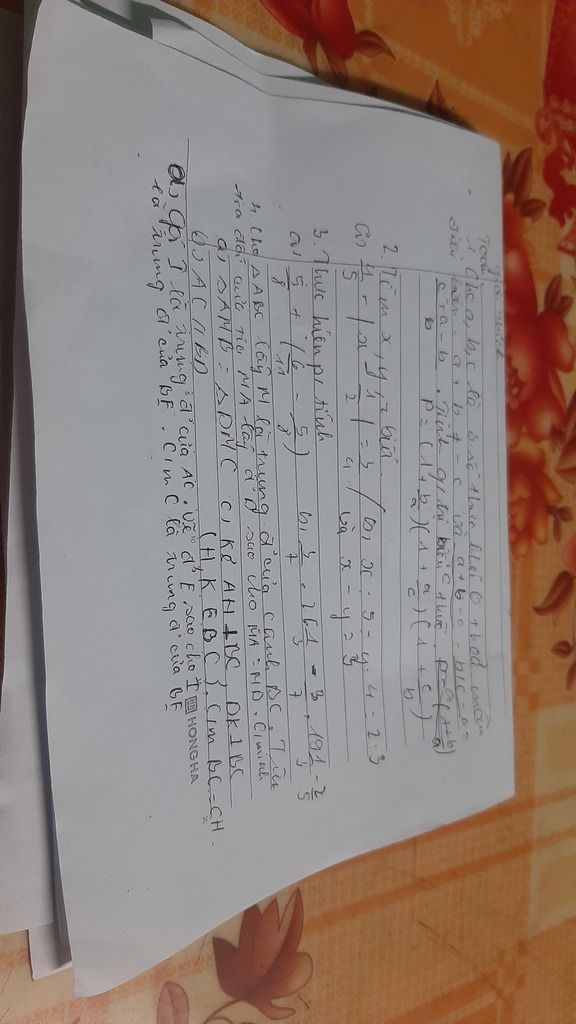 Toán
1. Cho a, b, c là 3 số thực khác 0 thoả mãn
điều kiện - a + b ≠ - c và a+b-c = b+c-a =
c+a-b . Tính giá trị biểu thức
b P=(1+b/a)(1+a/c)(1+c/b)
2. Tìm x, y, z biết
a, 4/5 - |x - 1/2| = 3/4 b, x : 5 = y : 4 = z : 3
và x - y = 3
3. Thực hiện p. tính
a, 5/8 + (6/11 - 5/8) b, 3/7 . 26 1/3 - 3/7 . 19 1/3 - 2/5
4. Cho △ABC lấy M là trung đ' của cạnh BC. Trên
tia đối của tia MA lấy đ' D sao cho MA = MD. C/minh
a, △AMB = △DMC c, Kẻ AH⊥BC, DK⊥BC
b, AC // BD (H, K ∈ BC). C/m BC = CH
d, Gọi I là trung đ' của AC. vẽ đ' E sao cho I HONGHA
là trung đ' của BE. C/m C là trung đ' của